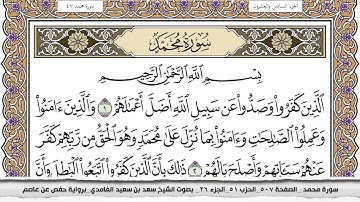 الجزء السادس والعشرون
سورة محمد ٤٧
سُورَةُ مُحَمَّدٍ
بِسْمِ اللَّهِ الرَّحْمَٰنِ الرَّحِيمِ
الَّذِينَ كَفَرُوا وَصَدُّوا عَن سَبِيلِ اللَّهِ أَضَلَّ أَعْمَالَهُمْ ١ وَالَّذِينَ ءَامَنُوا
وَعَمِلُوا الصَّالِحَاتِ وَءَامَنُوا بِمَا نُزِّلَ عَلَىٰ مُحَمَّدٍ وَهُوَ الْحَقُّ مِن رَّبِّهِمْ كَفَّرَ
عَنْهُمْ سَيِّـَٔاتِهِمْ وَأَصْلَحَ بَالَهُمْ ٢ ذَٰلِكَ بِأَنَّ الَّذِينَ كَفَرُوا اتَّبَعُوا الْبَاطِلَ وَأَنَّ
سورة محمد _ الصفحة ٥٠٧ _ الحزب ٥١ _ الجزء ٢٦ _ بصوت الشيخ سعد بن سعيد الغامدي _ برواية حفص عن عاصم